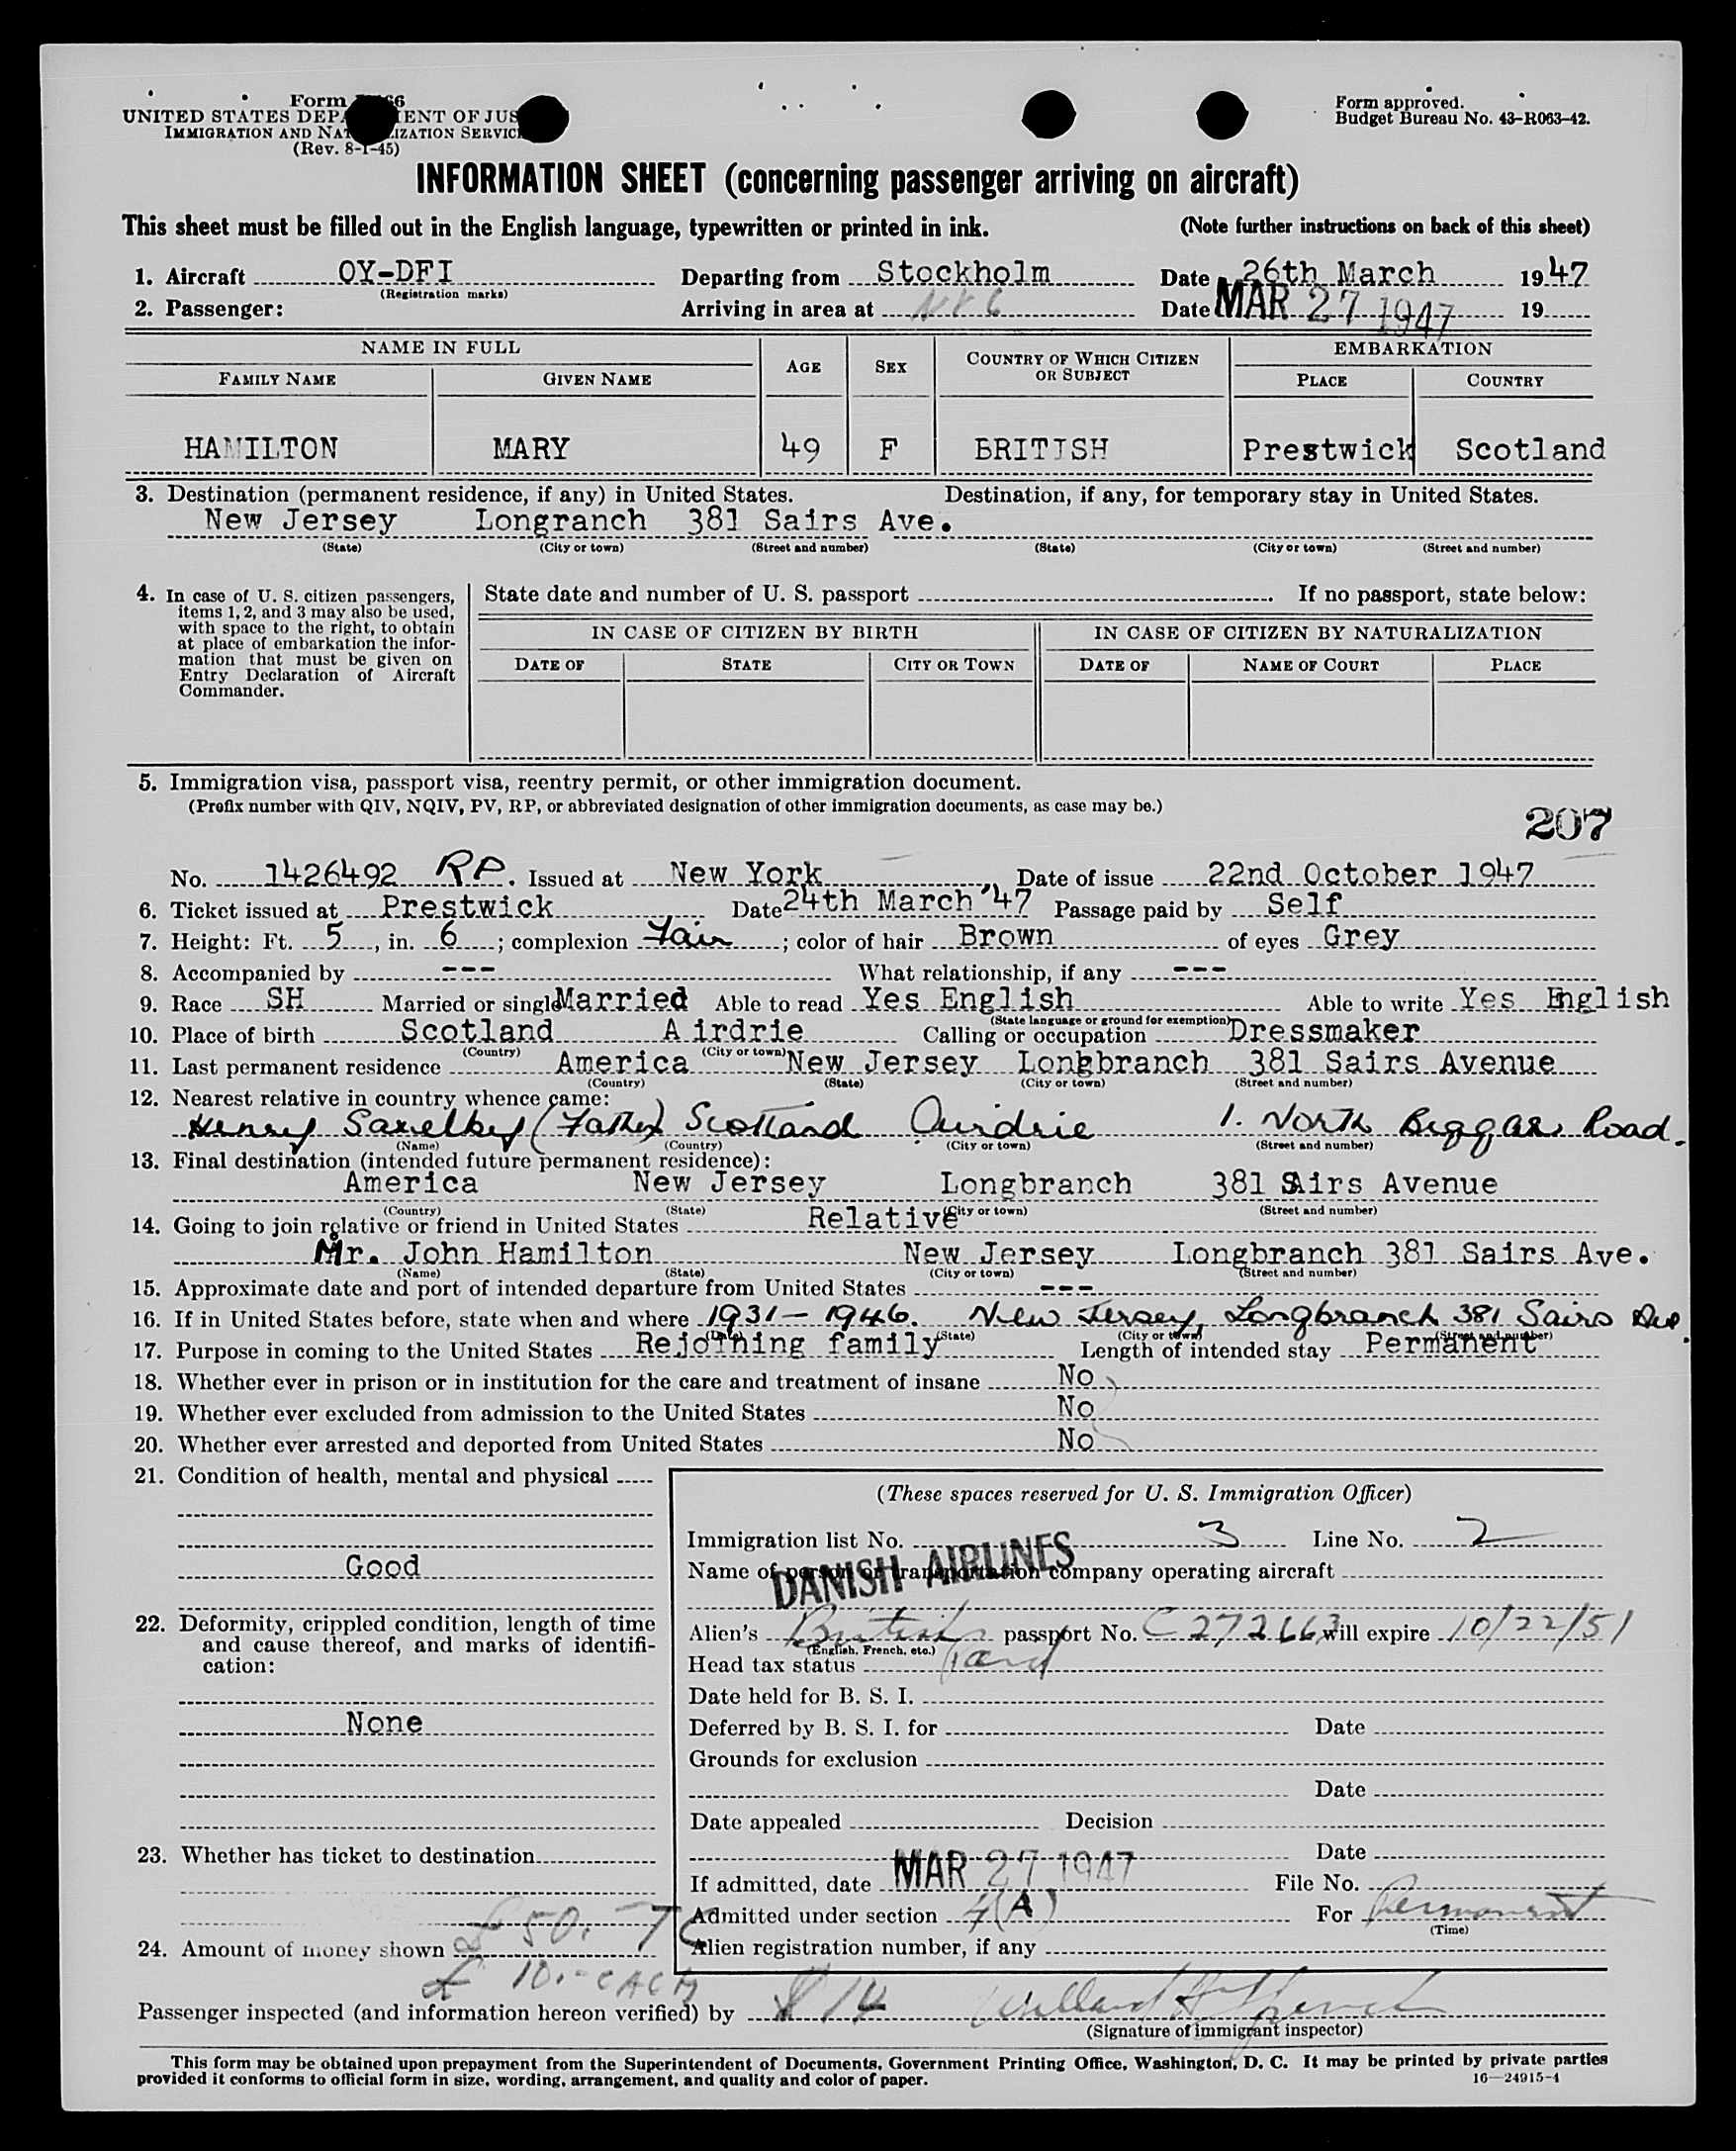 Form 66
UNITED STATES DEPA ENT OF JUS
IMMIGRATION AND NAT IZATION SERVIC
(Rev. 8-1-45)
Form approved.
Budget Bureau No. 43-R063-42.
INFORMATION SHEET (concerning passenger arriving on aircraft)
This sheet must be filled out in the English language, typewritten or printed in ink. (Note further instructions on back of this sheet)
1. Aircraft OY-DFI Departing from Stockholm Date 26th March 1947
(Registration marks)
2. Passenger: Arriving in area at Date MAR 27 1947 19
NAME IN FULL AGE SEX COUNTRY OF WHICH CITIZEN OR SUBJECT EMBARKATION
FAMILY NAME GIVEN NAME PLACE COUNTRY
HAMILTON MARY 49 F BRITISH Prestwick Scotland
3. Destination (permanent residence, if any) in United States. Destination, if any, for temporary stay in United States.
New Jersey Longranch 381 Sairs Ave.
(State) (City or town) (Street and number) (State) (City or town) (Street and number)
4. In case of U. S. citizen passengers,
items 1, 2, and 3 may also be used,
with space to the right, to obtain
at place of embarkation the infor-
mation that must be given on
Entry Declaration of Aircraft
Commander.
State date and number of U. S. passport . If no passport, state below:
IN CASE OF CITIZEN BY BIRTH IN CASE OF CITIZEN BY NATURALIZATION
DATE OF STATE CITY OR TOWN DATE OF NAME OF COURT PLACE
5. Immigration visa, passport visa, reentry permit, or other immigration document.
(Prefix number with QIV, NQIV, PV, RP, or abbreviated designation of other immigration documents, as case may be.)
207
No. 1426492 RP. Issued at New York, Date of issue 22nd October 1947
6. Ticket issued at Prestwick Date 24th March '47 Passage paid by Self
7. Height: Ft. 5, in. 6; complexion Fair; color of hair Brown of eyes Grey
8. Accompanied by --- What relationship, if any ---
9. Race SH Married or single Married Able to read Yes English Able to write Yes English
(State language or ground for exemption)
10. Place of birth Scotland Airdrie Calling or occupation Dressmaker
(Country) (City or town)
11. Last permanent residence America New Jersey Longbranch 381 Sairs Avenue
(Country) (State) (City or town) (Street and number)
12. Nearest relative in country whence came:
Henry Saxelbey (Father) Scotland Airdrie 1. North Biggar Road.
(Name) (Country) (City or town) (Street and number)
13. Final destination (intended future permanent residence):
America New Jersey Longbranch 381 SAirs Avenue
(Country) (State) (City or town) (Street and number)
14. Going to join relative or friend in United States Relative
Mr. John Hamilton New Jersey Longbranch 381 Sairs Ave.
(Name) (State) (City or town) (Street and number)
15. Approximate date and port of intended departure from United States ---
16. If in United States before, state when and where 1931 - 1946. New Jersey, Longbranch 381 Sairs Ave.
(Date) (State) (City or town) (Street and number)
17. Purpose in coming to the United States Rejoining family Length of intended stay Permanent
18. Whether ever in prison or in institution for the care and treatment of insane No
19. Whether ever excluded from admission to the United States No
20. Whether ever arrested and deported from United States No
21. Condition of health, mental and physical
Good
22. Deformity, crippled condition, length of time
and cause thereof, and marks of identifi-
cation:
None
23. Whether has ticket to destination
24. Amount of money shown £ 50. TC
£ 10.- EACH
(These spaces reserved for U. S. Immigration Officer)
Immigration list No. 3 Line No. 2
Name of person or transportation company operating aircraft
DANISH AIRLINES
Alien's British passport No. C 272663 will expire 10/22/51
(English, French, etc.)
Head tax status Paid
Date held for B. S. I.
Deferred by B. S. I. for Date
Grounds for exclusion
Date
Date appealed Decision
Date
If admitted, date MAR 27 1947 File No.
Admitted under section 4(A) For Permanent
(Time)
Alien registration number, if any
Passenger inspected (and information hereon verified) by $ 14
(Signature of immigrant inspector)
This form may be obtained upon prepayment from the Superintendent of Documents, Government Printing Office, Washington, D. C. It may be printed by private parties
provided it conforms to official form in size, wording, arrangement, and quality and color of paper. 16-24915-1